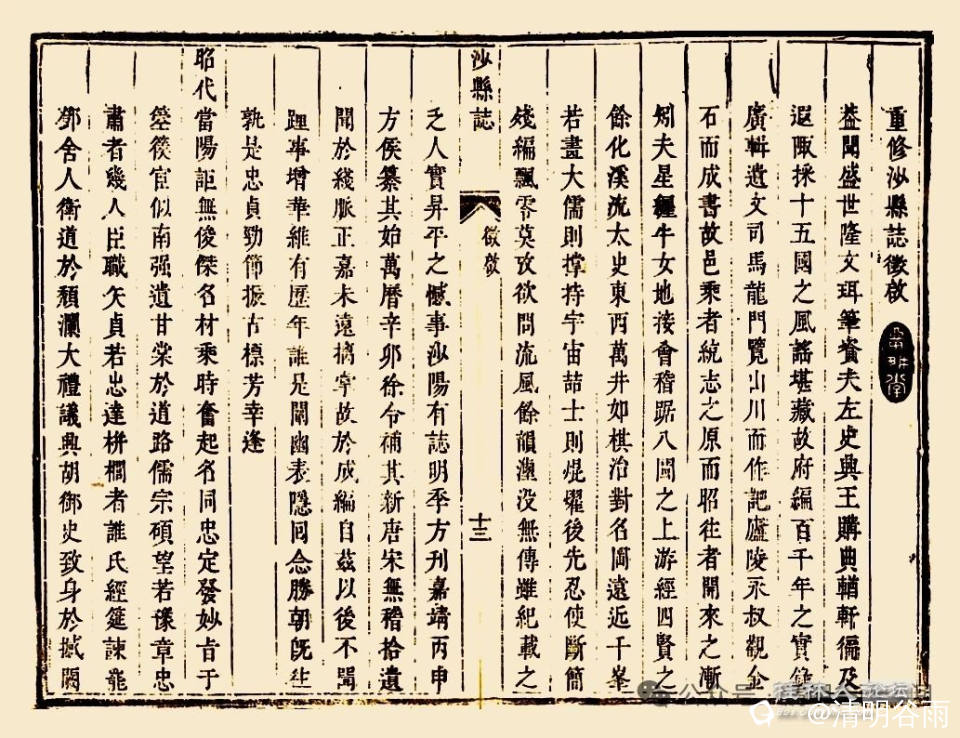 重修沙縣誌徵啟
蓋聞盛世隆文珥筆資夫左史興王購典輶軒徧及
遐陬採十五國之風謠堪藏故府編百千年之實錄
廣輯遺文司馬龍門覽山川而作記廬陵永叔觀金
石而成書故邑乘者統志之原而昭往者開來之漸
矧夫星纏牛女地接會稽踞八閩之上游經四賢之
餘化溪流太史東西萬井如棋治對名岡遠近千峯
若畫大儒則撑持宇宙喆士則焜燿後先忍使斷簡
殘編飄零莫攷欲問流風餘韻湮没無傳雖紀載之
沙縣誌
徵啟
十三
乏人實昇平之憾事沙陽有誌明季方刊嘉靖丙申
方侯纂其始萬曆辛卯徐令補其新唐宋無稽拾遺
聞於綫脈正嘉未遠摘字故於成編自茲以後不聞
踵事增華維有歷年誰是闡幽表隱同念勝朝旣往
孰是忠貞勁節振古標芳幸逢
昭代當陽詎無俊傑名材乘時奮起名同忠定發妙旨于
箜篌宦似南强遺甘棠於道路儒宗碩望若豫章忠
肅者幾人臣職矢貞若忠達栟櫚者誰氏經筵諫
鄧舍人衛道於頽瀾大禮議興胡御史致身於
公众号
桂林人论坛
@清明谷雨